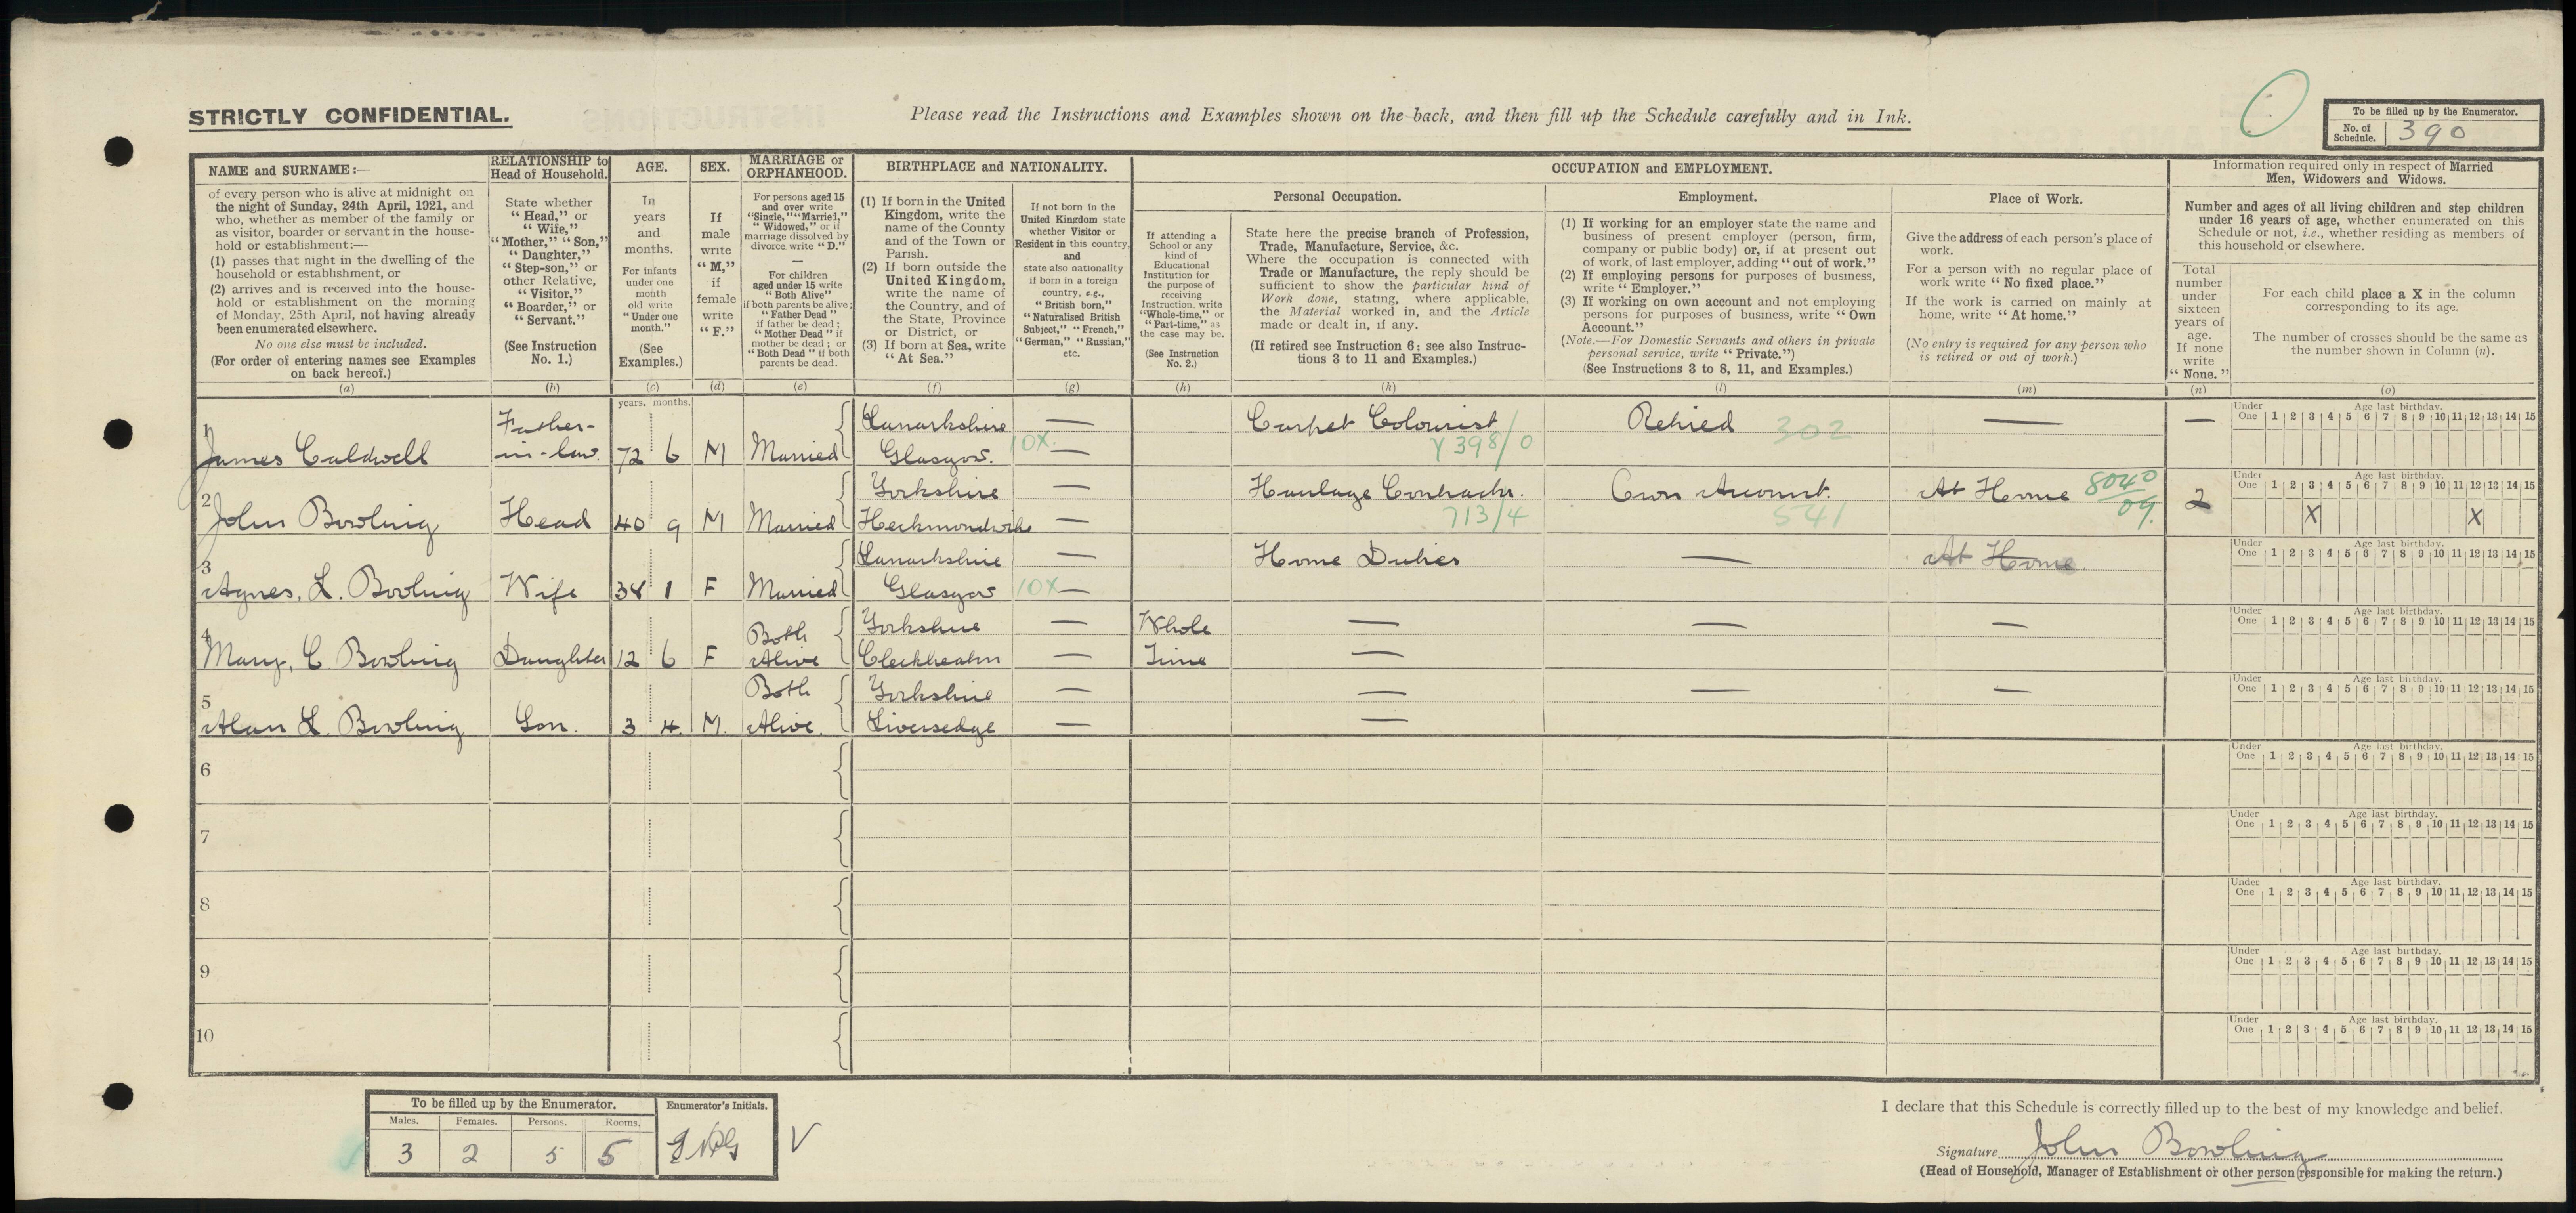 STRICTLY CONFIDENTIAL.
Please read the Instructions and Examples shown on the back, and then fill up the Schedule carefully and in Ink.
To be filled up by the Enumerator.
No. of Schedule. 390
NAME and SURNAME:—
of every person who is alive at midnight on
the night of Sunday, 24th April, 1921, and
who, whether as member of the family or
as visitor, boarder or servant in the house-
hold or establishment:—
(1) passes that night in the dwelling of the
household or establishment, or
(2) arrives and is received into the house-
hold or establishment on the morning
of Monday, 25th April, not having already
been enumerated elsewhere.
No one else must be included.
(For order of entering names see Examples
on back hereof.)
(a)
RELATIONSHIP to
Head of Household.
State whether
"Head," or
"Wife,"
"Mother," "Son,"
"Daughter,"
"Step-son," or
other Relative,
"Visitor,"
"Boarder," or
"Servant."
(See Instruction
No. 1.)
(b)
AGE.
In
years
and
months.
For infants
under one
month
old write
"Under one
month."
(See
Examples.)
(c)
SEX.
If
male
write
"M,"
if
female
write
"F."
(d)
MARRIAGE or
ORPHANHOOD.
For persons aged 15
and over write
"Single," "Married,"
"Widowed," or if
marriage dissolved by
divorce write "D."
—
For children
aged under 15 write
"Both Alive"
if both parents be alive;
"Father Dead"
if father be dead;
"Mother Dead" if
mother be dead; or
"Both Dead" if both
parents be dead.
(e)
BIRTHPLACE and NATIONALITY.
(1) If born in the United
Kingdom, write the
name of the County
and of the Town or
Parish.
(2) If born outside the
United Kingdom,
write the name of
the Country, and of
the State, Province
or District, or
(3) If born at Sea, write
"At Sea."
(f)
If not born in the
United Kingdom state
whether Visitor or
Resident in this country,
and
state also nationality
if born in a foreign
country, e.g.,
"British born,"
"Naturalised British
Subject," "French,"
"German," "Russian,"
etc.
(g)
OCCUPATION and EMPLOYMENT.
If attending a
School or any
kind of
Educational
Institution for
the purpose of
receiving
Instruction, write
"Whole-time," or
"Part-time," as
the case may be.
(See Instruction
No. 2.)
(h)
Personal Occupation.
State here the precise branch of Profession,
Trade, Manufacture, Service, &c.
Where the occupation is connected with
Trade or Manufacture, the reply should be
sufficient to show the particular kind of
Work done, stating, where applicable,
the Material worked in, and the Article
made or dealt in, if any.
(If retired see Instruction 6; see also Instruc-
tions 3 to 11 and Examples.)
(k)
Employment.
(1) If working for an employer state the name and
business of present employer (person, firm,
company or public body) or, if at present out
of work, of last employer, adding "out of work."
(2) If employing persons for purposes of business,
write "Employer."
(3) If working on own account and not employing
persons for purposes of business, write "Own
Account."
(Note.—For Domestic Servants and others in private
personal service, write "Private.")
(See Instructions 3 to 8, 11, and Examples.)
(l)
Place of Work.
Give the address of each person's place of
work.
For a person with no regular place of
work write "No fixed place."
If the work is carried on mainly at
home, write "At home."
(No entry is required for any person who
is retired or out of work.)
(m)
Information required only in respect of Married
Men, Widowers and Widows.
Number and ages of all living children and step children
under 16 years of age, whether enumerated on this
Schedule or not, i.e., whether residing as members of
this household or elsewhere.
Total
number
under
sixteen
years of
age.
If none
write
"None."
(n)
For each child place a X in the column
corresponding to its age.
The number of crosses should be the same as
the number shown in Column (n).
(o)
years. months.
1 James Caldwell Father-in-law. 72 6 M Married Lanarkshire Glasgow. — — 10X. Carpet Colourist Y 398/0 Retired 302 — —
Under One 1 2 3 4 5 6 7 8 9 10 11 12 13 14 15 Age last birthday.
2 John Bowling Head 40 9 M Married Yorkshire Heckmondwike — — Haulage Contractor. 713/4 Own Account. 541 At Home 8040 09. 2 X X
Under One 1 2 3 4 5 6 7 8 9 10 11 12 13 14 15 Age last birthday.
3 Agnes. L. Bowling Wife 38 1 F Married Lanarkshire Glasgow — — 10X Home Duties — At Home
Under One 1 2 3 4 5 6 7 8 9 10 11 12 13 14 15 Age last birthday.
4 Mary, C Bowling Daughter 12 6 F Both Alive Yorkshire Cleckheaton — — Whole Time — — — —
Under One 1 2 3 4 5 6 7 8 9 10 11 12 13 14 15 Age last birthday.
5 Alan L. Bowling Son. 3 4. M. Both Alive. Yorkshire Liversedge — — — — — —
Under One 1 2 3 4 5 6 7 8 9 10 11 12 13 14 15 Age last birthday.
6
Under One 1 2 3 4 5 6 7 8 9 10 11 12 13 14 15 Age last birthday.
7
Under One 1 2 3 4 5 6 7 8 9 10 11 12 13 14 15 Age last birthday.
8
Under One 1 2 3 4 5 6 7 8 9 10 11 12 13 14 15 Age last birthday.
9
Under One 1 2 3 4 5 6 7 8 9 10 11 12 13 14 15 Age last birthday.
10
Under One 1 2 3 4 5 6 7 8 9 10 11 12 13 14 15 Age last birthday.
To be filled up by the Enumerator.
Males. Females. Persons. Rooms.
3 2 5 5
Enumerator's Initials.
I declare that this Schedule is correctly filled up to the best of my knowledge and belief.
Signature John Bowling
(Head of Household, Manager of Establishment or other person responsible for making the return.)